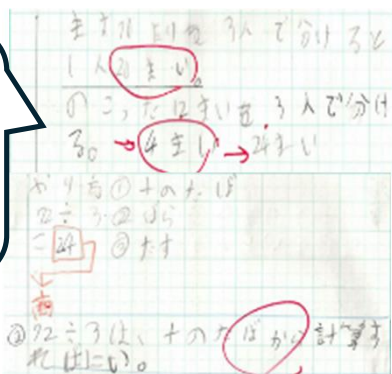 まず10のたばを3人で分けると
1人20まい。
のこった12まいを3人で分け
る。→4まい→24まい
やり方①十のたば
72÷3②ばら
=24 ③たす
②72÷3は、十のたばから計算す
ればいい。